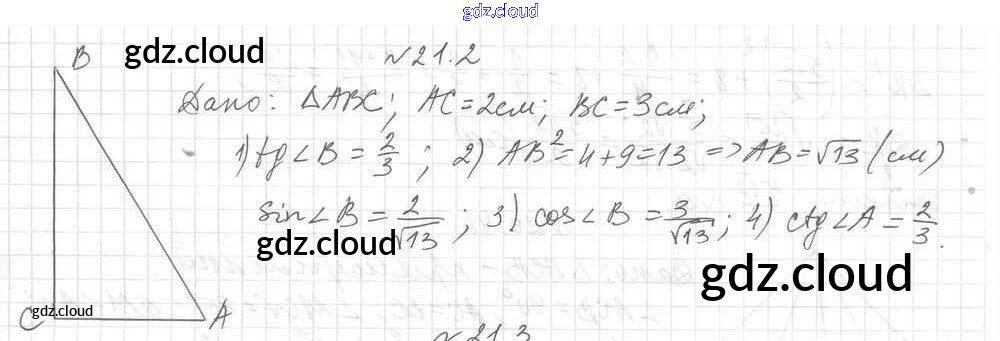 gdz.cloud
B gdz.cloud №21.2
Дано: △ABC; AC=2см; BC=3см;
1) tg∠B = 2/3 ; 2) AB²=4+9=13 => AB=√13 (см)
sin∠B = 2/√13 ; 3) cos∠B = 3/√13 ; 4) ctg∠A = 2/3.
gdz.cloud
gdz.cloud
C gdz.cloud A
№21.3